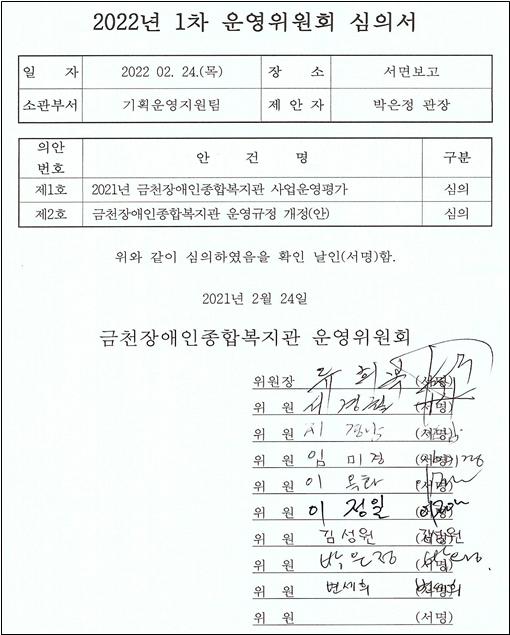 2022년 1차 운영위원회 심의서
일 자 2022 02. 24.(목) 장 소 서면보고
소관부서 기획운영지원팀 제 안 자 박은정 관장
의안 번호 안 건 명 구분
제1호 2021년 금천장애인종합복지관 사업운영평가 심의
제2호 금천장애인종합복지관 운영규정 개정(안) 심의
위와 같이 심의하였음을 확인 날인(서명)함.
2021년 2월 24일
금천장애인종합복지관 운영위원회
위원장 류 희 (서명)
위 원 서경 (서명)
위 원 (서명)
위 원 임 미 경 (서명)
위 원 이 (서명)
위 원 이 정일 (서명)
위 원 김성원 (서명) 김성원
위 원 박은정 (서명)
위 원 변세희 (서명) 변세희
위 원 (서명)